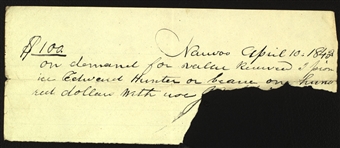 $100 Nauvoo April 10. 1843
on demand for value Received I prom
ise Edward Hunter or bearer one hund
red dollars with use